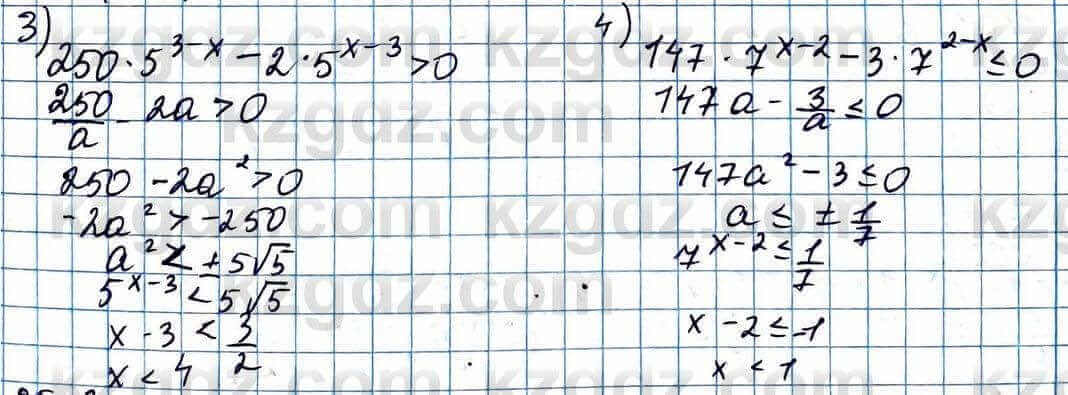 3) 250 · 5^(3-x) - 2 · 5^(x-3) > 0
250/a - 2a > 0
250 - 2a² > 0
-2a² > -250
a² < ± 5√5
5^(x-3) < 5√5
x - 3 < 3/2
x < 4
4) 147 · 7^(x-2) - 3 · 7^(2-x) ≤ 0
147a - 3/a ≤ 0
147a² - 3 ≤ 0
a ≤ ± 1/7
7^(x-2) ≤ 1/7
x - 2 ≤ -1
x < 1
kzgdz.com